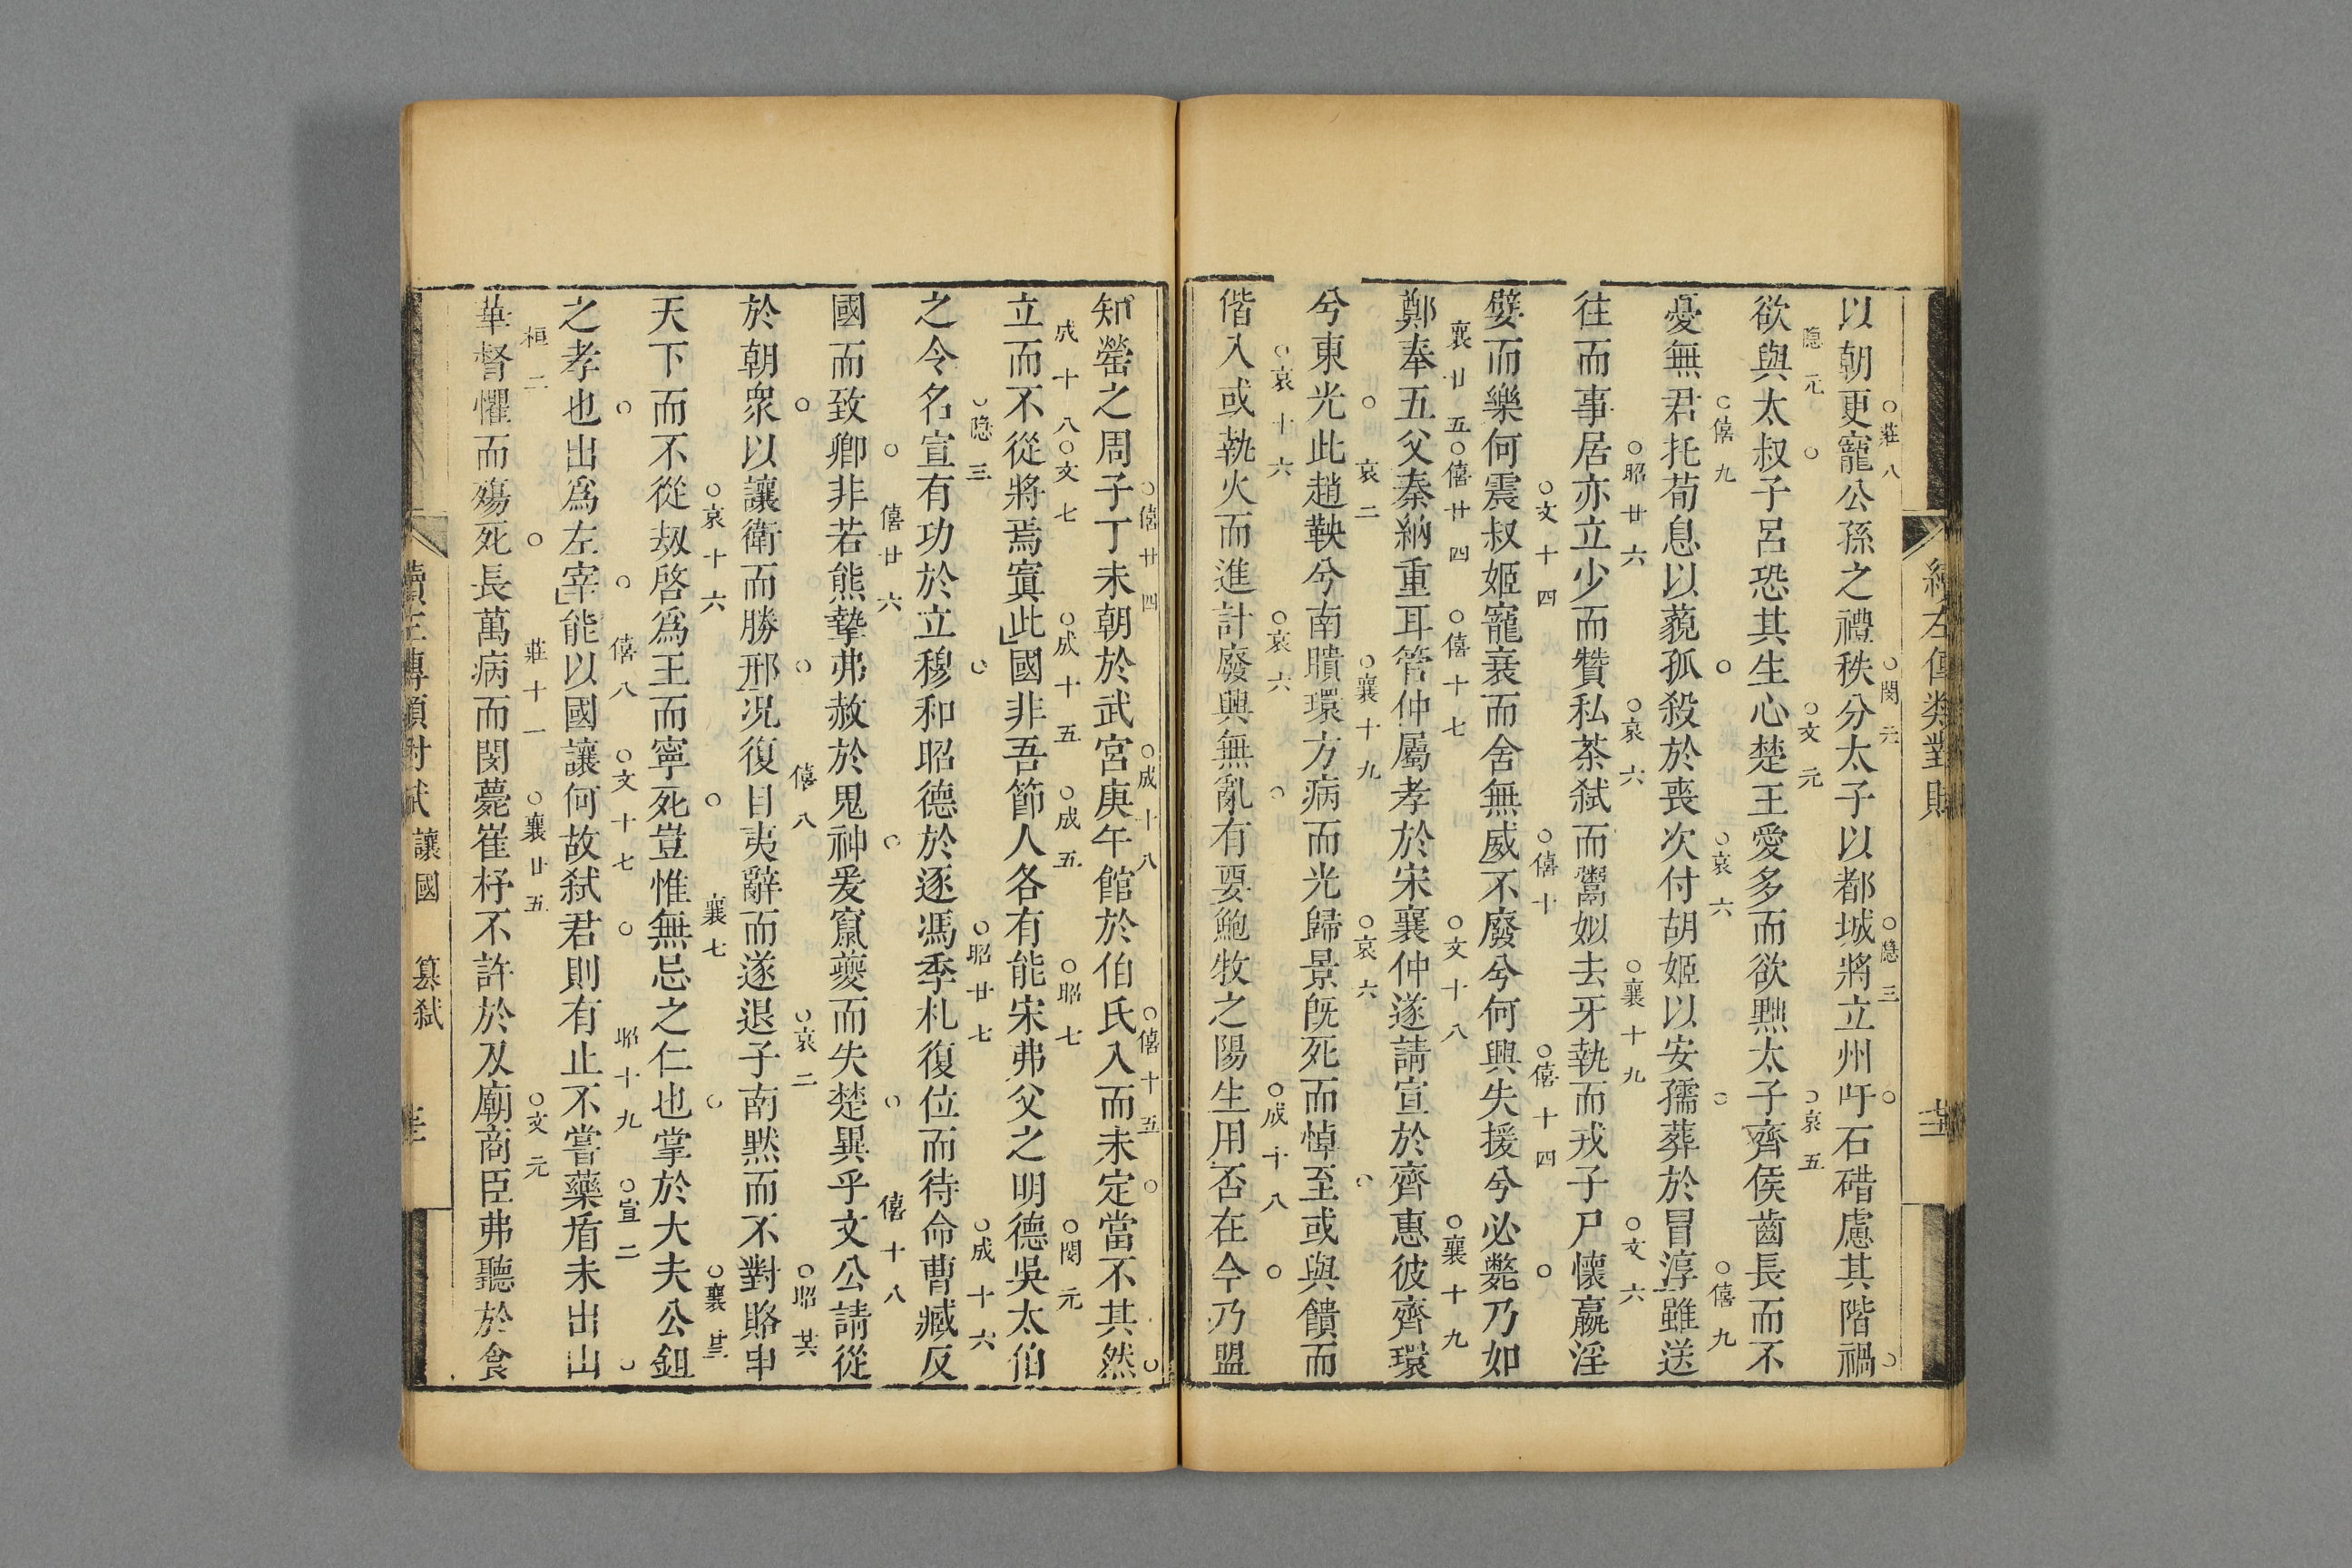 續左傳類對賦
以朝更寵公孫之禮秩分太子以都城將立州吁石碏慮其階禍
○莊八 ○閔元 ○隱三 ○ ○
欲與太叔子呂恐其生心楚王愛多而欲黜太子齊侯齒長而不
隱元 ○ ○文元 ○哀五
憂無君托荀息以藐孤殺於喪次付胡姬以安孺葬於冒淳雖送
○僖九 ○ ○哀六 ○ ○僖九
往而事居亦立少而贊私荼弒而鬻姒去牙執而戎子尸懷嬴淫
○昭廿六 ○哀六 ○襄十九 ○文六
嬖而樂何震叔姬寵衰而舍無威不廢兮何興失援兮必斃乃如
○文十四 ○僖十 ○僖十四 ○
鄭奉五父秦納重耳管仲屬孝於宋襄仲遂請宣於齊惠彼齊環
襄廿五 ○僖廿四 ○僖十七 ○文十八 ○襄十九
兮東光此趙鞅兮南瞶環方病而光歸景旣死而悼至或與饋而
○ 哀二 ○襄十九 ○哀六 ○
偕入或執火而進計廢興無亂有要鮑牧之陽生用否在今乃盟
○哀十六 ○哀六 ○ ○成十八 ○
知罃之周子丁未朝於武宮庚午館於伯氏入而未定當不其然
○僖廿四 ○成十八 ○僖十五 ○ ○
立而不從將焉寘此國非吾節人各有能宋弗父之明德吳太伯
成十八 ○文七 ○成十五 ○成五 ○昭七 ○閔元
之令名宣有功於立穆和昭德於逐馮季札復位而待命曹臧反
○隱三 ○ ○昭廿七 ○成十六
國而致卿非若熊摯弗赦於鬼神爰竄夔而失楚異乎文公請從
○ 僖廿六 ○ ○ 僖十八
於朝衆以讓衛而勝邢况復目夷辭而遂退子南默而不對賂申
○ ○ 僖八 ○哀二 ○昭廿六
天下而不從刼啓爲王而寧死豈惟無忌之仁也掌於大夫公鉏
○哀十六 ○ 襄七 ○ ○襄廿三
之孝也出爲左宰能以國讓何故弒君則有止不嘗藥盾未出山
○ ○ 僖八 ○文十七 ○ 昭十九 ○宣二 ○
華督懼而殤死長萬病而閔薨崔杼不許於及廟商臣弗聽於食
桓二 ○ 莊十一 ○襄廿五 ○文元
續左傳類對賦 讓國 篡弒